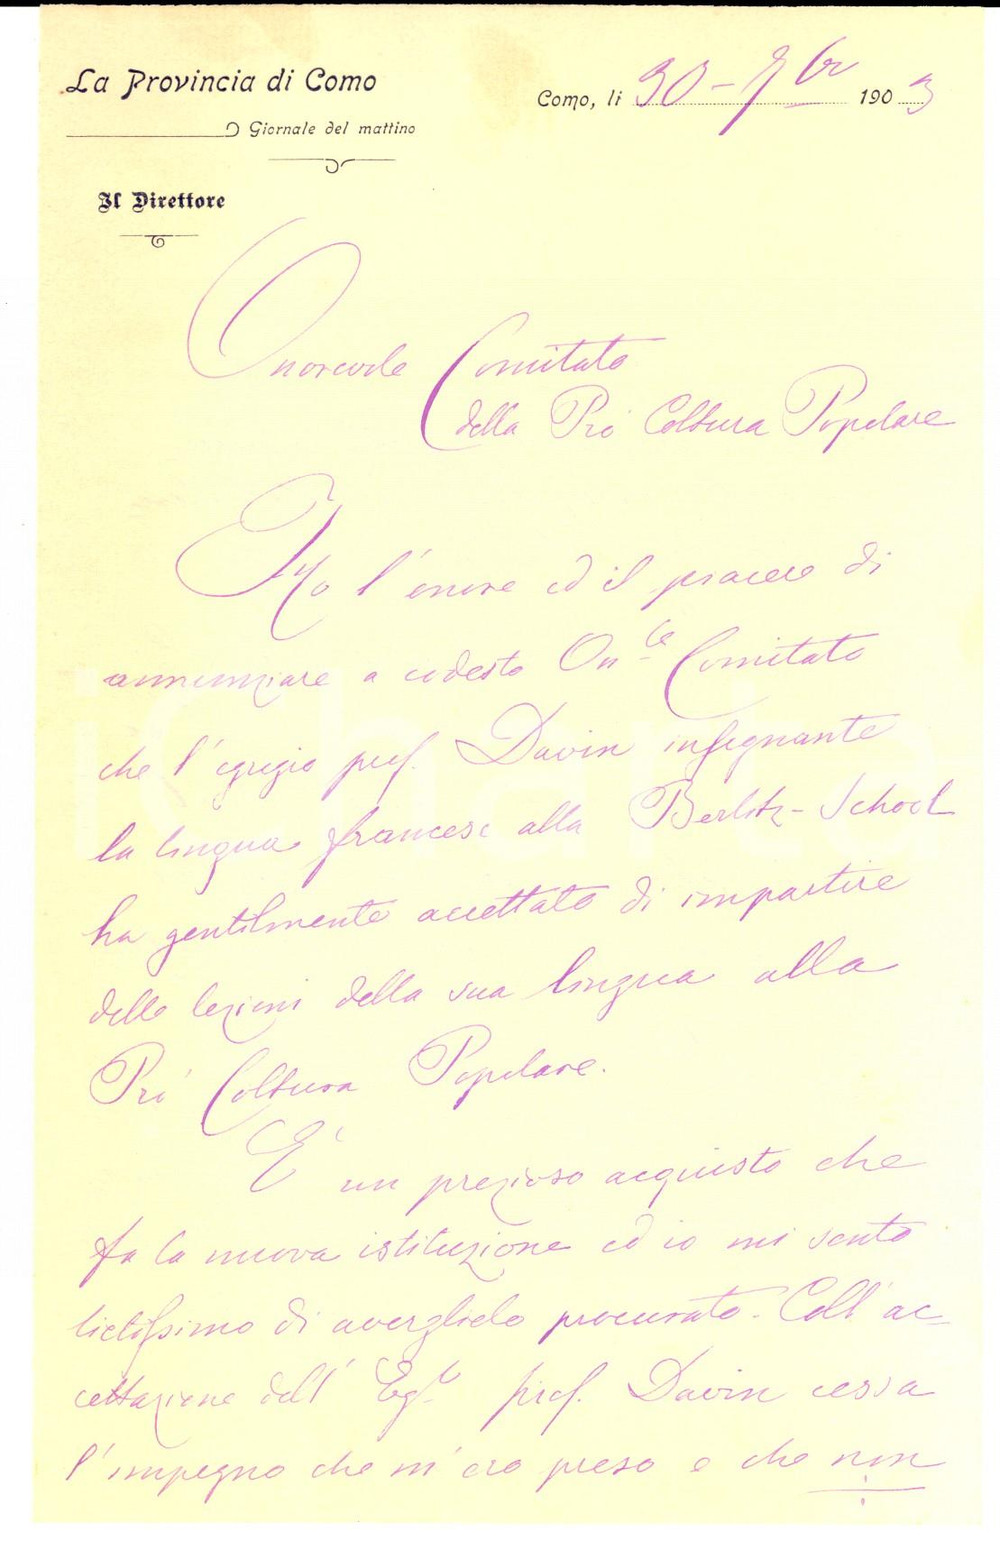 La Provincia di Como
Giornale del mattino
Il Direttore
Como, li 30 - 7bre 1903
Onorevole Comitato
della Pro Coltura Popolare
Ho l'onore ed il piacere di
annunziare a codesto On.le Comitato
che l'egregio prof. Davin insegnante
la lingua francese alla Berlitz-School
ha gentilmente accettato di impartire
delle lezioni della sua lingua alla
Pro Coltura Popolare.
E' un prezioso acquisto che
fa la nuova istituzione ed io mi sento
lietissimo di averglielo procurato. Coll'ac-
cettazione dell'Eg.o prof. Davin cessa
l'impegno che m'ero preso e che non
iCharta